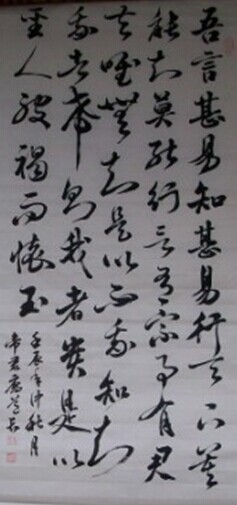 吾言甚易知甚易行天下莫
能知莫能行言有宗事有君
夫唯無知是以不我知知
我者希則我者貴是以
聖人被褐而懷玉
壬辰年仲秋月